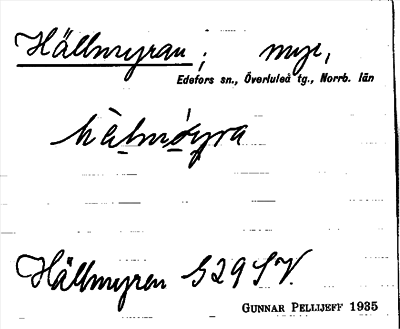 Hällmyran; myr,
Edefors sn., Överluleå tg., Norrb. län
hälmöyra
Hällmyren G29SV.
GUNNAR PELLIJEFF 1935